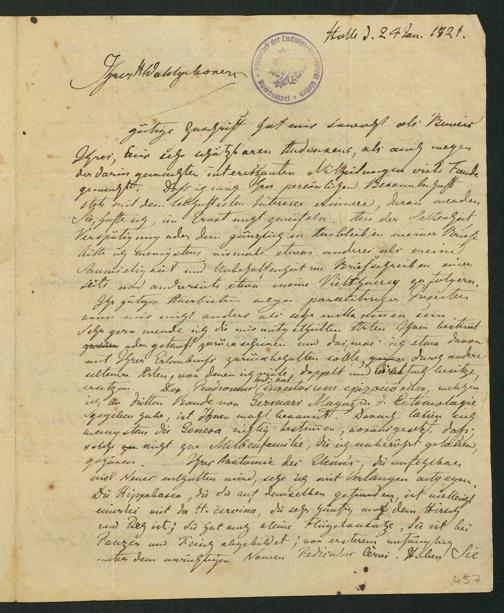 Halle d. 24 Jan. 1821.
Ihrer Wohlgeboren
gütige Zuschrift hat mir sowohl als Beweis
Ihres, mir sehr schätzbaren Andenkens, als auch wegen
der darin gemachten interessanten Mittheilungen viele Freude
gemacht. Daß ich mich Ihrer persönlichen Bekanntschaft
stets mit dem lebhaftesten Interesse erinnere, daran werden
Sie, hoffe ich, im Ernst nicht zweifeln. Aus der
Verspätigung oder dem gänzlichen Ausbleiben meiner Briefe
bitte ich wenigstens niemals etwas anderes als meine
und Unbeholfenheit im Briefschreiben einer
seits und andrerseits etwa meine zu folgern.
Ihr gütiges Anerbieten wegen parasitischer Insecten
kann mir nicht anders als sehr willkommen sein.
Sehr gern werde ich die mir mitgetheilten Arten Ihnen bestimt
oder getauft zurücksenden und das, was ich etwa davon
mit Ihrer Erlaubniß zurückbehalten sollte, durch andre
seltenere Arten, von denen ich viele doppelt besitze,
ersetzen. Den Prodromus Insectorum epizoicorum, welchen
ich im dritten Bande von Germars Magazin d. Entomologie
gegeben habe, ist Ihnen wohl bekannt? Darnach lassen sich
wenigstens die Genera richtig bestimmen, vorausgesetzt, daß
solche nicht zur Milbenfamilie, die ich unberührt gelassen
gehören. Ihrer Anatomie des, die unfehlbar
viel Neues enthalten wird, sehe ich mit Verlangen entgegen.
Die Hippobosca, die Sie auf demselben gefunden, ist vielleicht
einerlei mit der H. cervina, die sehr häufig auf dem Hirsch
und Reh ist; sie hat auch kleine Flügelansätze, sie ist bei
Panzer und abgebildet; von ersterem
unter dem unrichtigen Namen Pediculus Cervi. Haben Sie
457